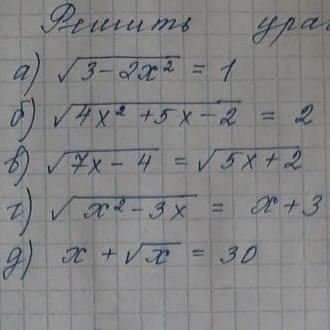 Решить ура
а) √(3-2x²) = 1
б) √(4x²+5x-2) = 2
в) √(7x-4) = √(5x+2)
г) √(x²-3x) = x+3
д) x+√x = 30